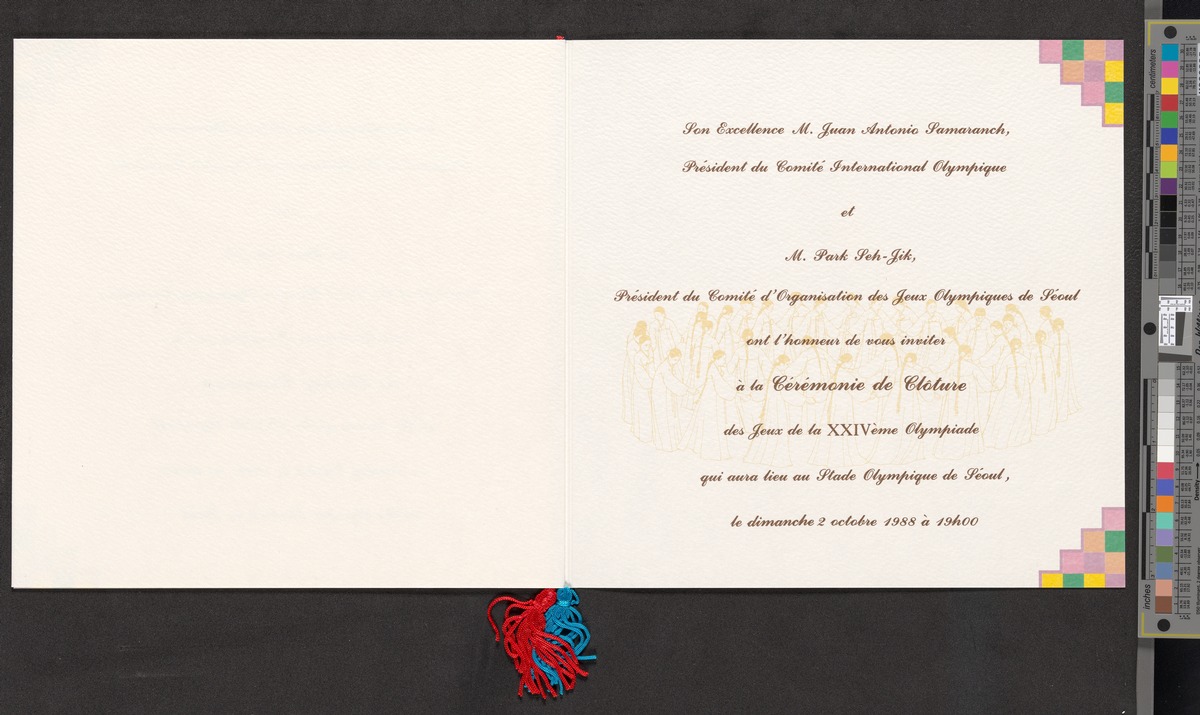 Son Excellence M. Juan Antonio Samaranch,
Président du Comité International Olympique
et
M. Park Seh-Jik,
Président du Comité d'Organisation des Jeux Olympiques de Séoul
ont l'honneur de vous inviter
à la Cérémonie de Clôture
des Jeux de la XXIVème Olympiade
qui aura lieu au Stade Olympique de Séoul,
le dimanche 2 octobre 1988 à 19h00
centimeters
inches